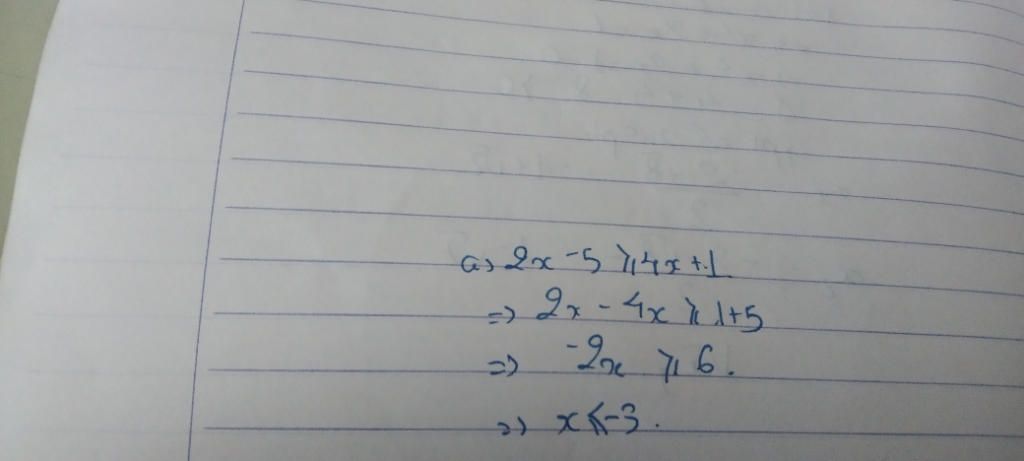 a) 2x - 5 ⩾ 4x + 1
=> 2x - 4x ⩾ 1 + 5
=> -2x ⩾ 6.
=> x ⩽ -3.